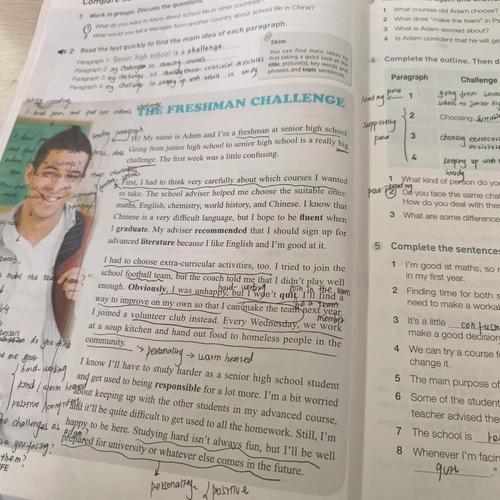 Work in groups. Discuss the questions.
What do you want to know about school life in other countries?
What would you tell a teenager from another country about school life in China?
2 Read the text quickly to find the main idea of each paragraph.
Paragraph 1 Senior high school is a challenge.
Paragraph 2 my challenge in choosing courses
Paragraph 3 my challenge in extra-curricular activities
Paragraph 4 my challenge in keeping up with others in study
Skim
You can find main ideas by
first taking a quick look at the
title, picture(s), key words and
phrases, and topic sentences.
THE FRESHMAN CHALLENGE
leading paragraph
Hi! My name is Adam and I'm a freshman at senior high school.
Going from junior high school to senior high school is a really big
challenge. The first week was a little confusing.
First, I had to think very carefully about which courses I wanted
to take. The school adviser helped me choose the suitable ones:
maths, English, chemistry, world history, and Chinese. I know that
Chinese is a very difficult language, but I hope to be fluent when
I graduate. My adviser recommended that I should sign up for
advanced literature because I like English and I'm good at it.
I had to choose extra-curricular activities, too. I tried to join the
school football team, but the coach told me that I didn't play well
hard-working join in the team
enough. Obviously, I was unhappy, but I won't quit. I'll find a
be a team
way to improve on my own so that I can make the team next year.
member
I joined a volunteer club instead. Every Wednesday, we work
at a soup kitchen and hand out food to homeless people in the
community.
personality warm hearted
I know I'll have to study harder as a senior high school student
and get used to being responsible for a lot more. I'm a bit worried
about keeping up with the other students in my advanced course,
and it'll be quite difficult to get used to all the homework. Still, I'm
happy to be here. Studying hard isn't always fun, but I'll be well
prepared for university or whatever else comes in the future.
personality positive
hard-working
kind / warm hearted
positive
1 What courses did Adam choose?
2 What does "make the team" in P
3 What is Adam worried about?
4 Is Adam confident that he will ge
Complete the outline. Then d
Paragraph Challenge
leading para 1 going from senior
school to junior hi
supporting para
2 Choosing suitabl
3 choosing
4 keeping up with
study
1 What kind of person do y
2 Do you face the same cha
How do you deal with the
3 What are some difference
5 Complete the sentences
1 I'm good at maths, so
in my first year.
2 Finding time for both
need to make a workab
3 It's a little confus
make a good decision
4 We can try a course f
change it.
5 The main purpose of
6 Some of the student
teacher advised the
7 The school is re
8 Whenever I'm facin
quit